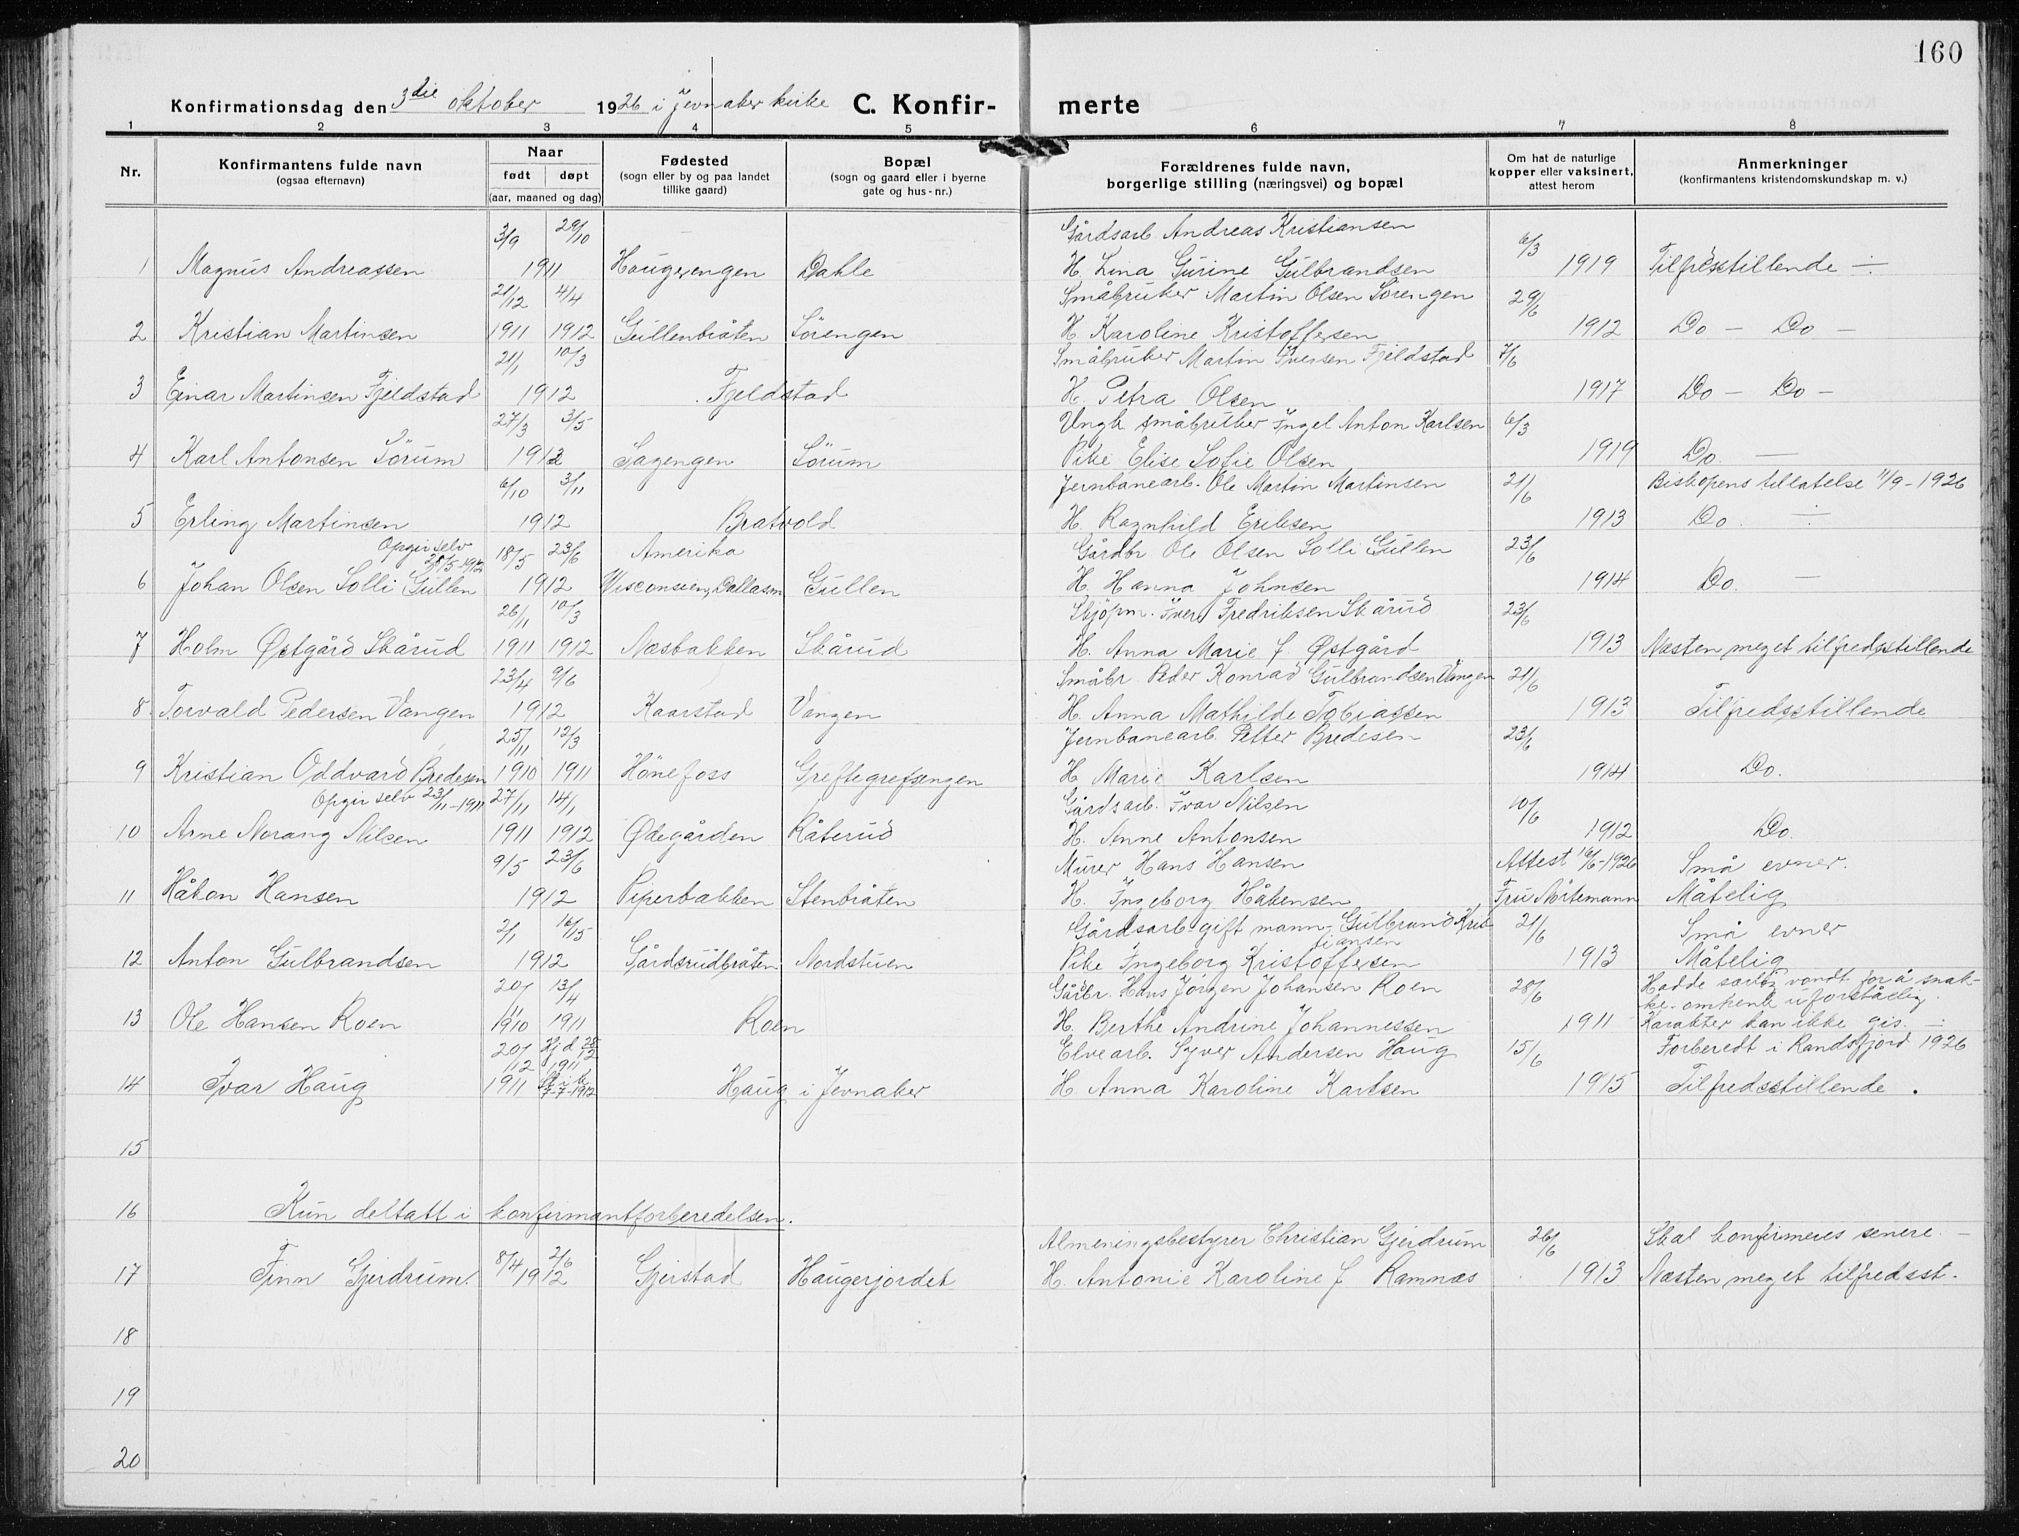 160
Konfirmationsdag den 3die oktober 1926 i Jevnaker kirke C. Konfir- merte
1 2 3 4 5 6 7 8
Nr. Konfirmantens fulde navn (ogsaa efternavn) Naar født døpt (aar, maaned og dag) Fødested (sogn eller by og paa landet tillike gaard) Bopæl (sogn og gaard eller i byerne gate og hus-nr.) Forældrenes fulde navn, borgerlige stilling (næringsvei) og bopæl Om hat de naturlige kopper eller vaksinert, attest herom Anmerkninger (konfirmantens kristendomskundskap m. v.)
3/9 29/10 Gårdsarb. Andreas Kristiansen 6/3
1 Magnus Andreassen 1911 Haugerengen Dahle H. Lina Gurine Gulbrandsen 1919 Tilfredsstillende ÷
21/12 4/4 Småbruker Martin Olsen Sørengen 29/6
2 Kristian Martinsen 1911 1912 Gullenbråten Sørengen H. Karoline Kristoffersen 1912 Do – Do –
21/1 10/3 Småbruker Martin Iversen Fjeldstad 7/6
3 Einar Martinsen Fjeldstad 1912 Fjeldstad H. Petra Olsen 1917 Do – Do –
27/3 3/5 Ungk. småbruker Ingel Anton Karlsen 6/3
4 Karl Antonsen Sørum 1912 Sagengen Sørum Pike Elise Sofie Olsen 1919 Do. —
6/10 3/11 Jernbanearb. Ole Martin Martinsen 21/6 Biskopens tillatelse 11/9-1926
5 Erling Martinsen 1912 Bratvold H. Ragnhild Eriksen 1913 Do. ÷
Opgir selv 28/5-1912 18/5 23/6 Amerika Gårdbr. Ole Olsen Solli Gullen 23/6
6 Johan Olsen Solli Gullen 1912 Wisconsien, Dallasm Gullen H. Hanna Johnsen 1914 Do. —
26/11 10/3 Skjøpm. Iver Fredriksen Skårud 23/6
7 Holm Østgård Skårud 1911 1912 Næsbakken Skårud H. Anna Marie f. Østgård 1913 Næsten meget tilfredsstillende
23/4 9/6 Småbr. Peder Konrad Gulbrandsen Vangen 21/6
8 Torvald Pedersen Vangen 1912 Kaarstad Vangen H. Anna Mathilde Tobiassen 1913 Tilfredsstillende
25/11 12/3 Jernbanearb. Petter Bredesen 23/6
9 Kristian Oddvard Bredesen 1910 1911 Hönefoss Greftegrefsengen H. Marie Karlsen 1914 Do.
Opgir selv 23/11-1911 27/11 14/1 Gårdsarb. Ivar Nilsen 10/6
10 Arne Norang Nilsen 1911 1912 Ødegården Råterud H. Anne Antonsen 1912 Do.
9/5 23/6 Murer Hans Hansen Attest 16/6-1926 Små evner.
11 Håkon Hansen 1912 Piperbakken Stenbråten H. Ingeborg Håkensen Fru Mørtemann Måtelig
2/1 16/15 Gårdsarb. gift mann Gulbrand Kristiansen 21/6 Små evner
12 Anton Gulbrandsen 1912 Gårdsrudbråten Nordstuen Pike Ingeborg Kristoffersen 1913 Måtelig
20/11 13/4 Gårbr. Hans Jørgen Johansen Roen 28/6 Hadde særlig vondt for å snakke omkent uforståelig.
13 Ole Hansen Roen 1910 1911 Roen H. Berthe Andrine Johannessen 1911 Karakter kan ikke gis. ÷
20/12 Hjd 28/12 1911 Elvearb. Syver Andersen Haug 15/6 Forberedt i Randsfjord 1926
14 Ivar Haug 1911 St. i k. 7-7-1912 Haug i Jevnaker H. Anna Karoline Karlsen 1915 Tilfredsstillende.
15
16 Kun deltatt i konfirmantforberedelsen.
8/4 2/6 Almeningsbestyrer Christian Gjerdrum 26/6 Skal konfirmeres senere. –
17 Finn Gjerdrum. 1912 Gjerstad Haugerjordet H. Antonie Karoline f. Ramnæs 1913 Næsten meget tilfredsst.
18
19
20